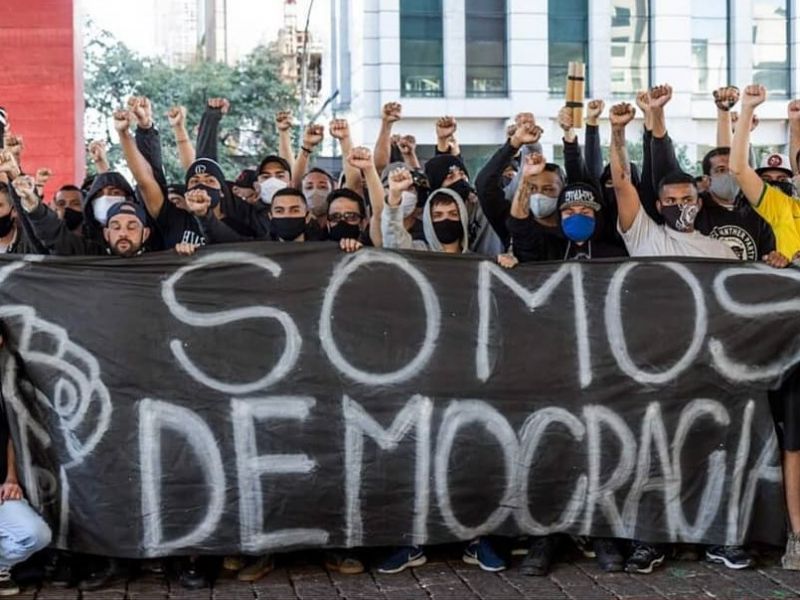 SOMOS
DEMOCRACIA